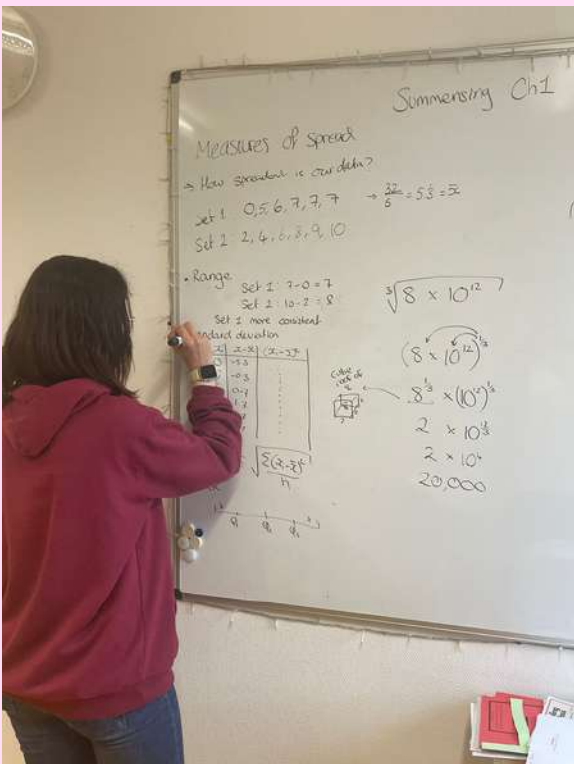 Summensing Ch1
Measures of spread
→ How spreadout is our data?
Set 1: 0, 5, 6, 7, 7, 7 → 32/6 = 5.3 = x̄
Set 2: 2, 4, 6, 8, 9, 10
• Range
Set 1: 7-0 = 7
Set 2: 10-2 = 8
Set 1 more consistent
deviation
x-x̄ (x-x̄)²
-5.3
-0.3
0.7
√Σ(x-x̄)²/n
∛8 × 10¹²
(8 × 10¹²)^1/3
Cube root of 8
8^1/3 × (10¹²)^1/3
2 × 10^12/3
2 × 10⁴
20,000